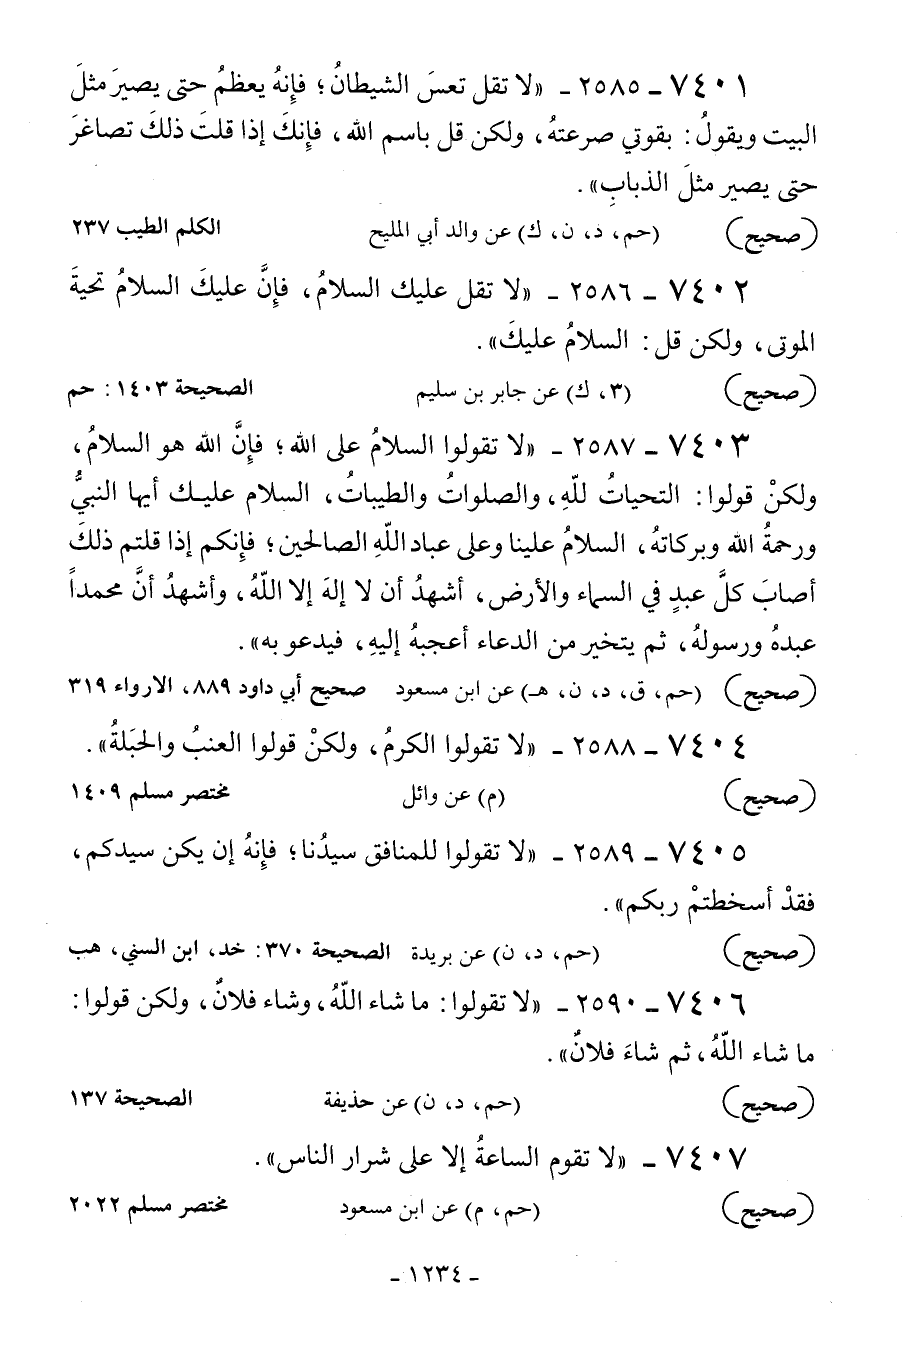 ٧٤٠١ ـ ٢٥٨٥ ـ «لا تقل تعسَ الشيطانُ؛ فإِنهُ يعظمُ حتى يصيرَ مثلَ
البيت ويقولُ: بقوتي صرعتهُ، ولكن قل باسم الله، فإِنكَ إذا قلتَ ذلكَ تصاغرَ
حتى يصير مثلَ الذبابِ».
(صحيح) (حم، د، ن، ك) عن والد أبي المليح الكلم الطيب ٢٣٧
٧٤٠٢ ـ ٢٥٨٦ ـ «لا تقل عليك السلامُ، فإِنَّ عليكَ السلامُ تحيةَ
الموتى، ولكن قل: السلامُ عليكَ».
(صحيح) (٣، ك) عن جابر بن سليم الصحيحة ١٤٠٣: حم
٧٤٠٣ ـ ٢٥٨٧ ـ «لا تقولوا السلامُ على الله؛ فإِنَّ الله هو السلامُ،
ولكنْ قولوا: التحياتُ للّهِ، والصلواتُ والطيباتُ، السلام عليك أيها النبيُّ
ورحمةُ الله وبركاتهُ، السلامُ علينا وعلى عباد اللّهِ الصالحين؛ فإِنكم إذا قلتم ذلكَ
أصابَ كلَّ عبدٍ في السماء والأرض، أشهدُ أن لا إلهَ إلا اللّهُ، وأشهدُ أنَّ محمداً
عبدهُ ورسولهُ، ثم يتخير من الدعاء أعجبهُ إليهِ، فيدعو به».
(صحيح) (حم، ق، د، ن، هـ) عن ابن مسعود صحيح أبي داود ٨٨٩، الارواء ٣١٩
٧٤٠٤ ـ ٢٥٨٨ ـ «لا تقولوا الكرمُ، ولكنْ قولوا العنبُ والحَبَلةُ».
(صحيح) (م) عن وائل مختصر مسلم ١٤٠٩
٧٤٠٥ ـ ٢٥٨٩ ـ «لا تقولوا للمنافق سيدُنا؛ فإِنهُ إن يكن سيدكم،
فقدْ أسخطتمْ ربكم».
(صحيح) (حم، د، ن) عن بريدة الصحيحة ٣٧٠: خد، ابن السني، هب
٧٤٠٦ ـ ٢٥٩٠ ـ «لا تقولوا: ما شاء اللّهُ، وشاء فلانٌ، ولكن قولوا:
ما شاء اللّهُ، ثم شاءَ فلانٌ».
(صحيح) (حم، د، ن) عن حذيفة الصحيحة ١٣٧
٧٤٠٧ ـ «لا تقوم الساعةُ إلا على شرار الناس».
(صحيح) (حم، م) عن ابن مسعود مختصر مسلم ٢٠٢٢
ـ ١٢٣٤ ـ